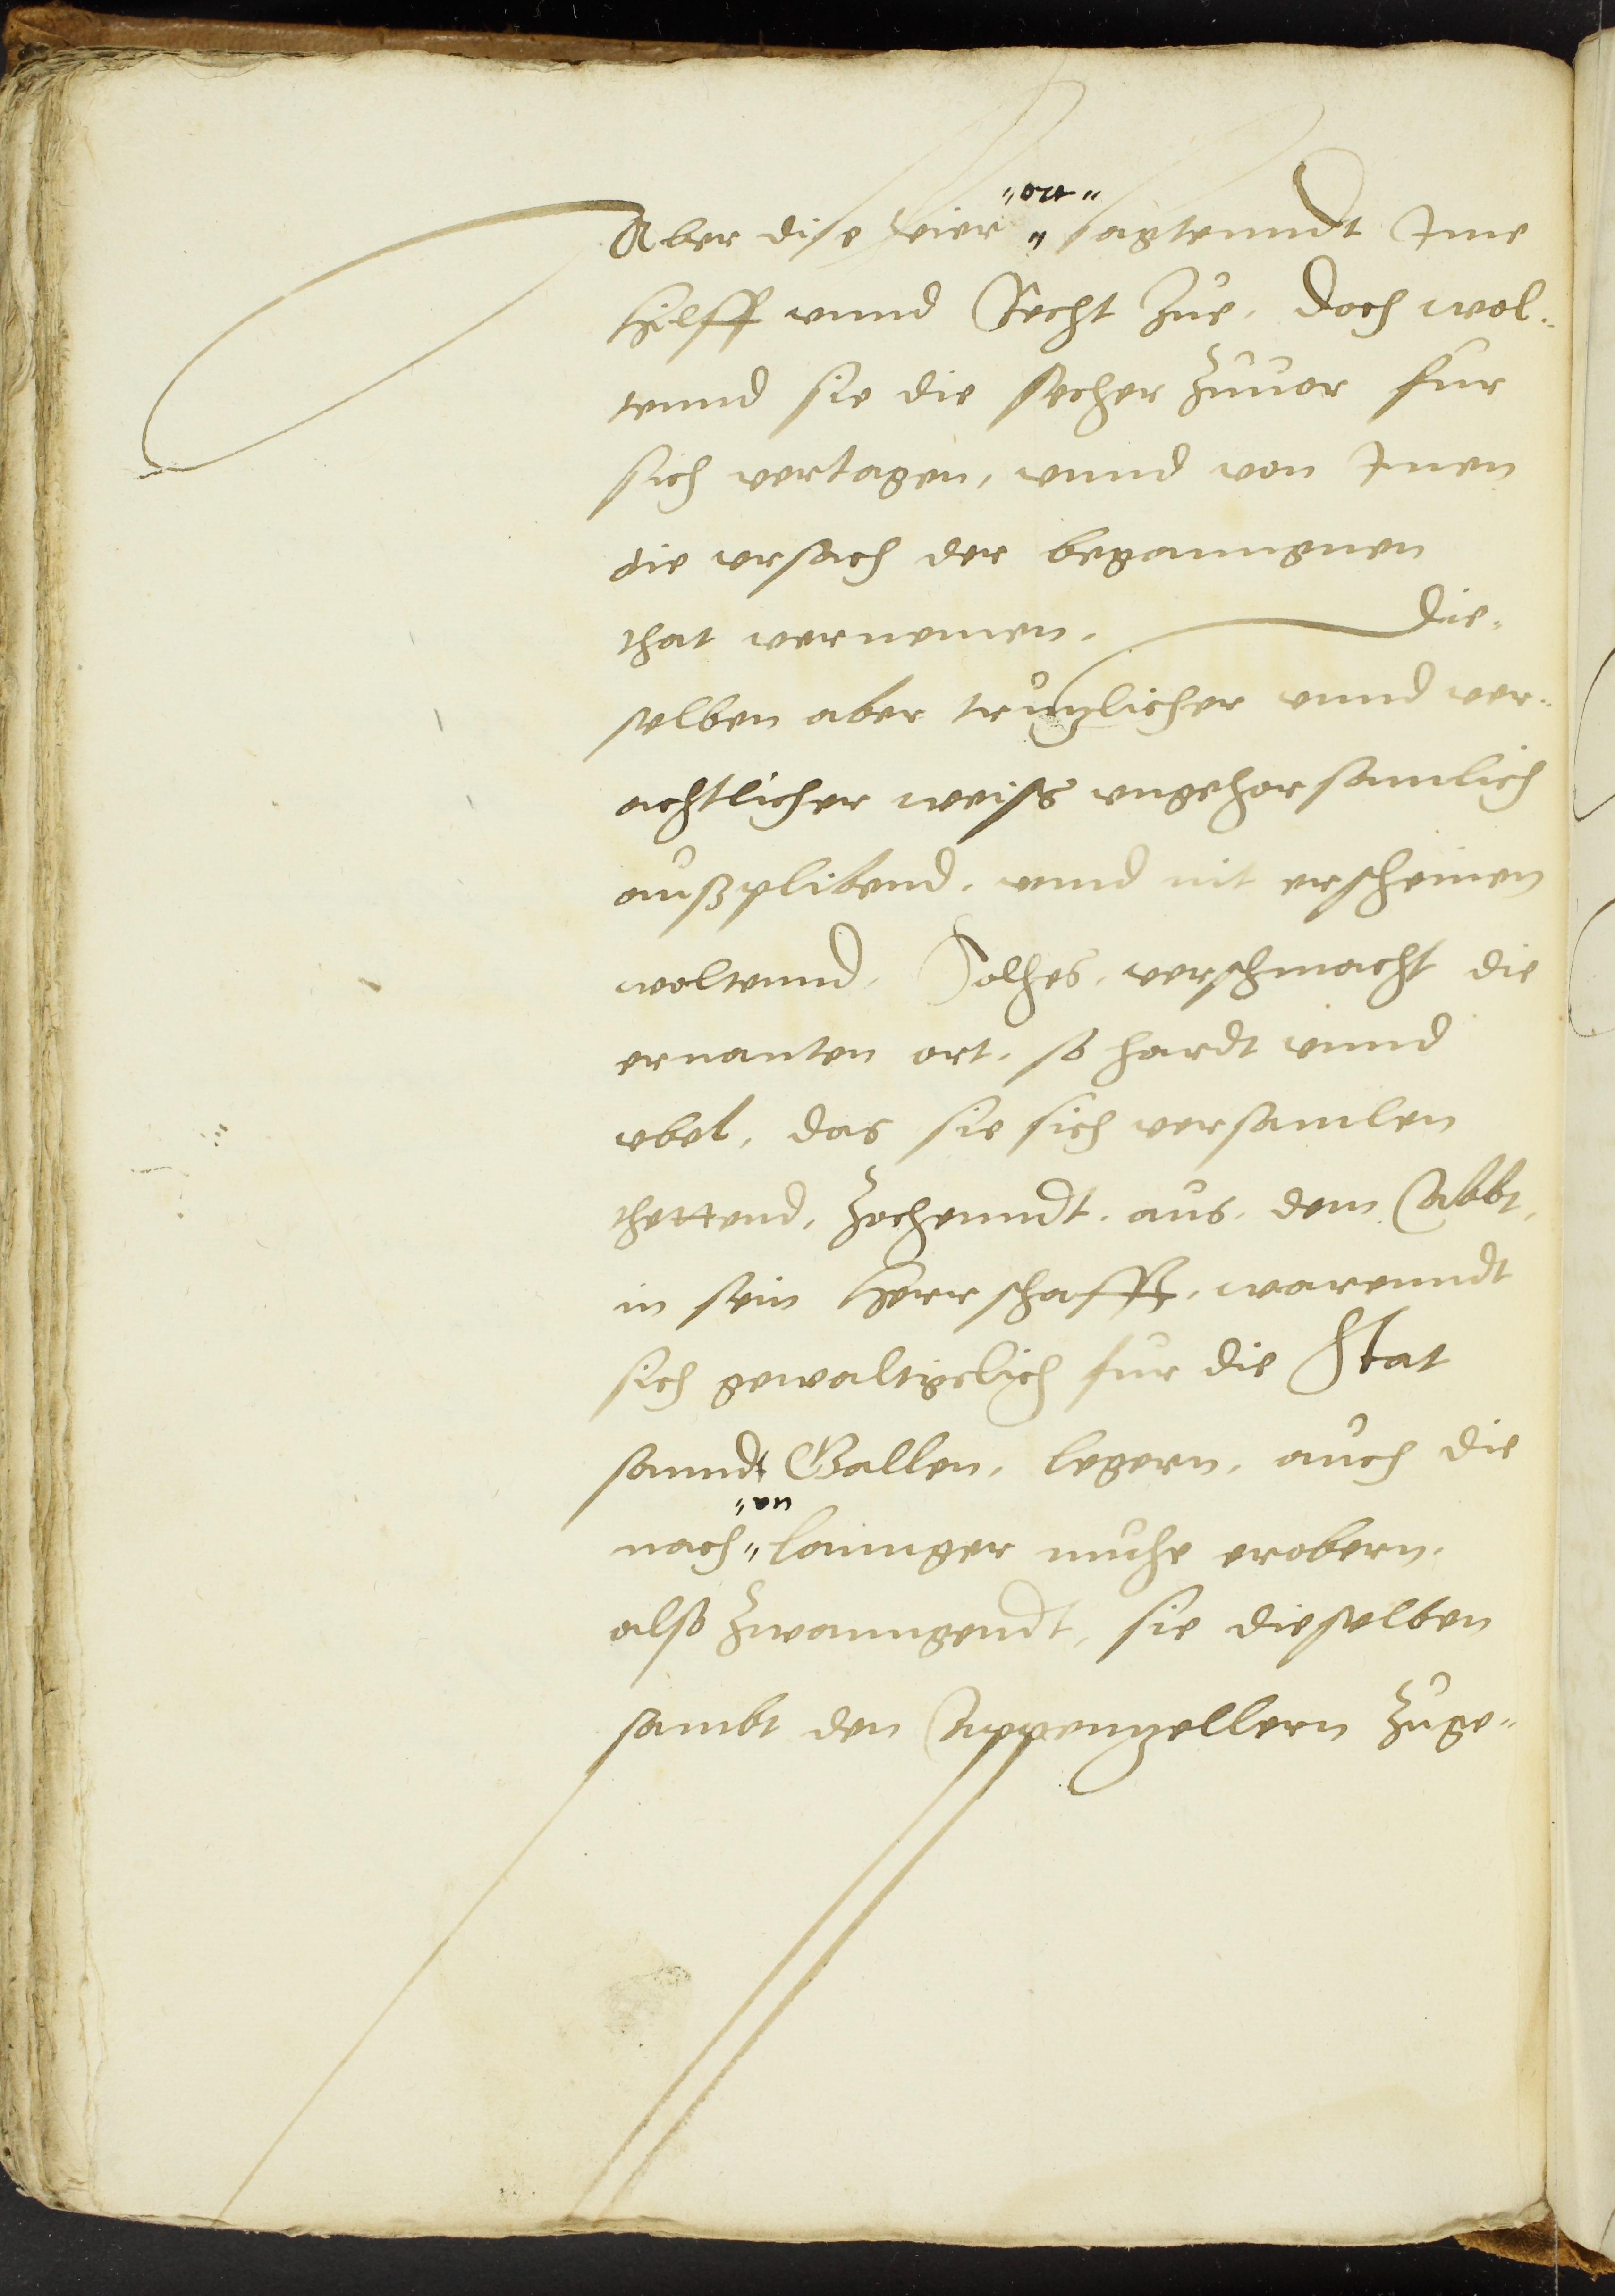 Aber dise vier "ort" sagtenndt Jme
hilff vnnd Recht zue, doch wol-
tennd sie die secher zuuor fur
sich vertagen, vnnd von Jnen
die vrsach der beganngnen
that vernemen. Die-
selben aber trutzlicher vnnd ver-
achtlicher weiss vngehorsamlich
außplibend, vnnd nit erscheinen
woltennd, Solhes, verschmacht die
ernanten ort, so hardt vnnd
vbel, das sie sich versamlen
thettend, zochenndt, aus, dem Abbt,
in sein Herrschafft, warenndt
sich gewaltigclich fur die Stat
sanndt Gallen, legern, auch die
nach "lannger muhe erobern,
also zwanngendt, sie dieselben
sambt den Appenzellern zuge-